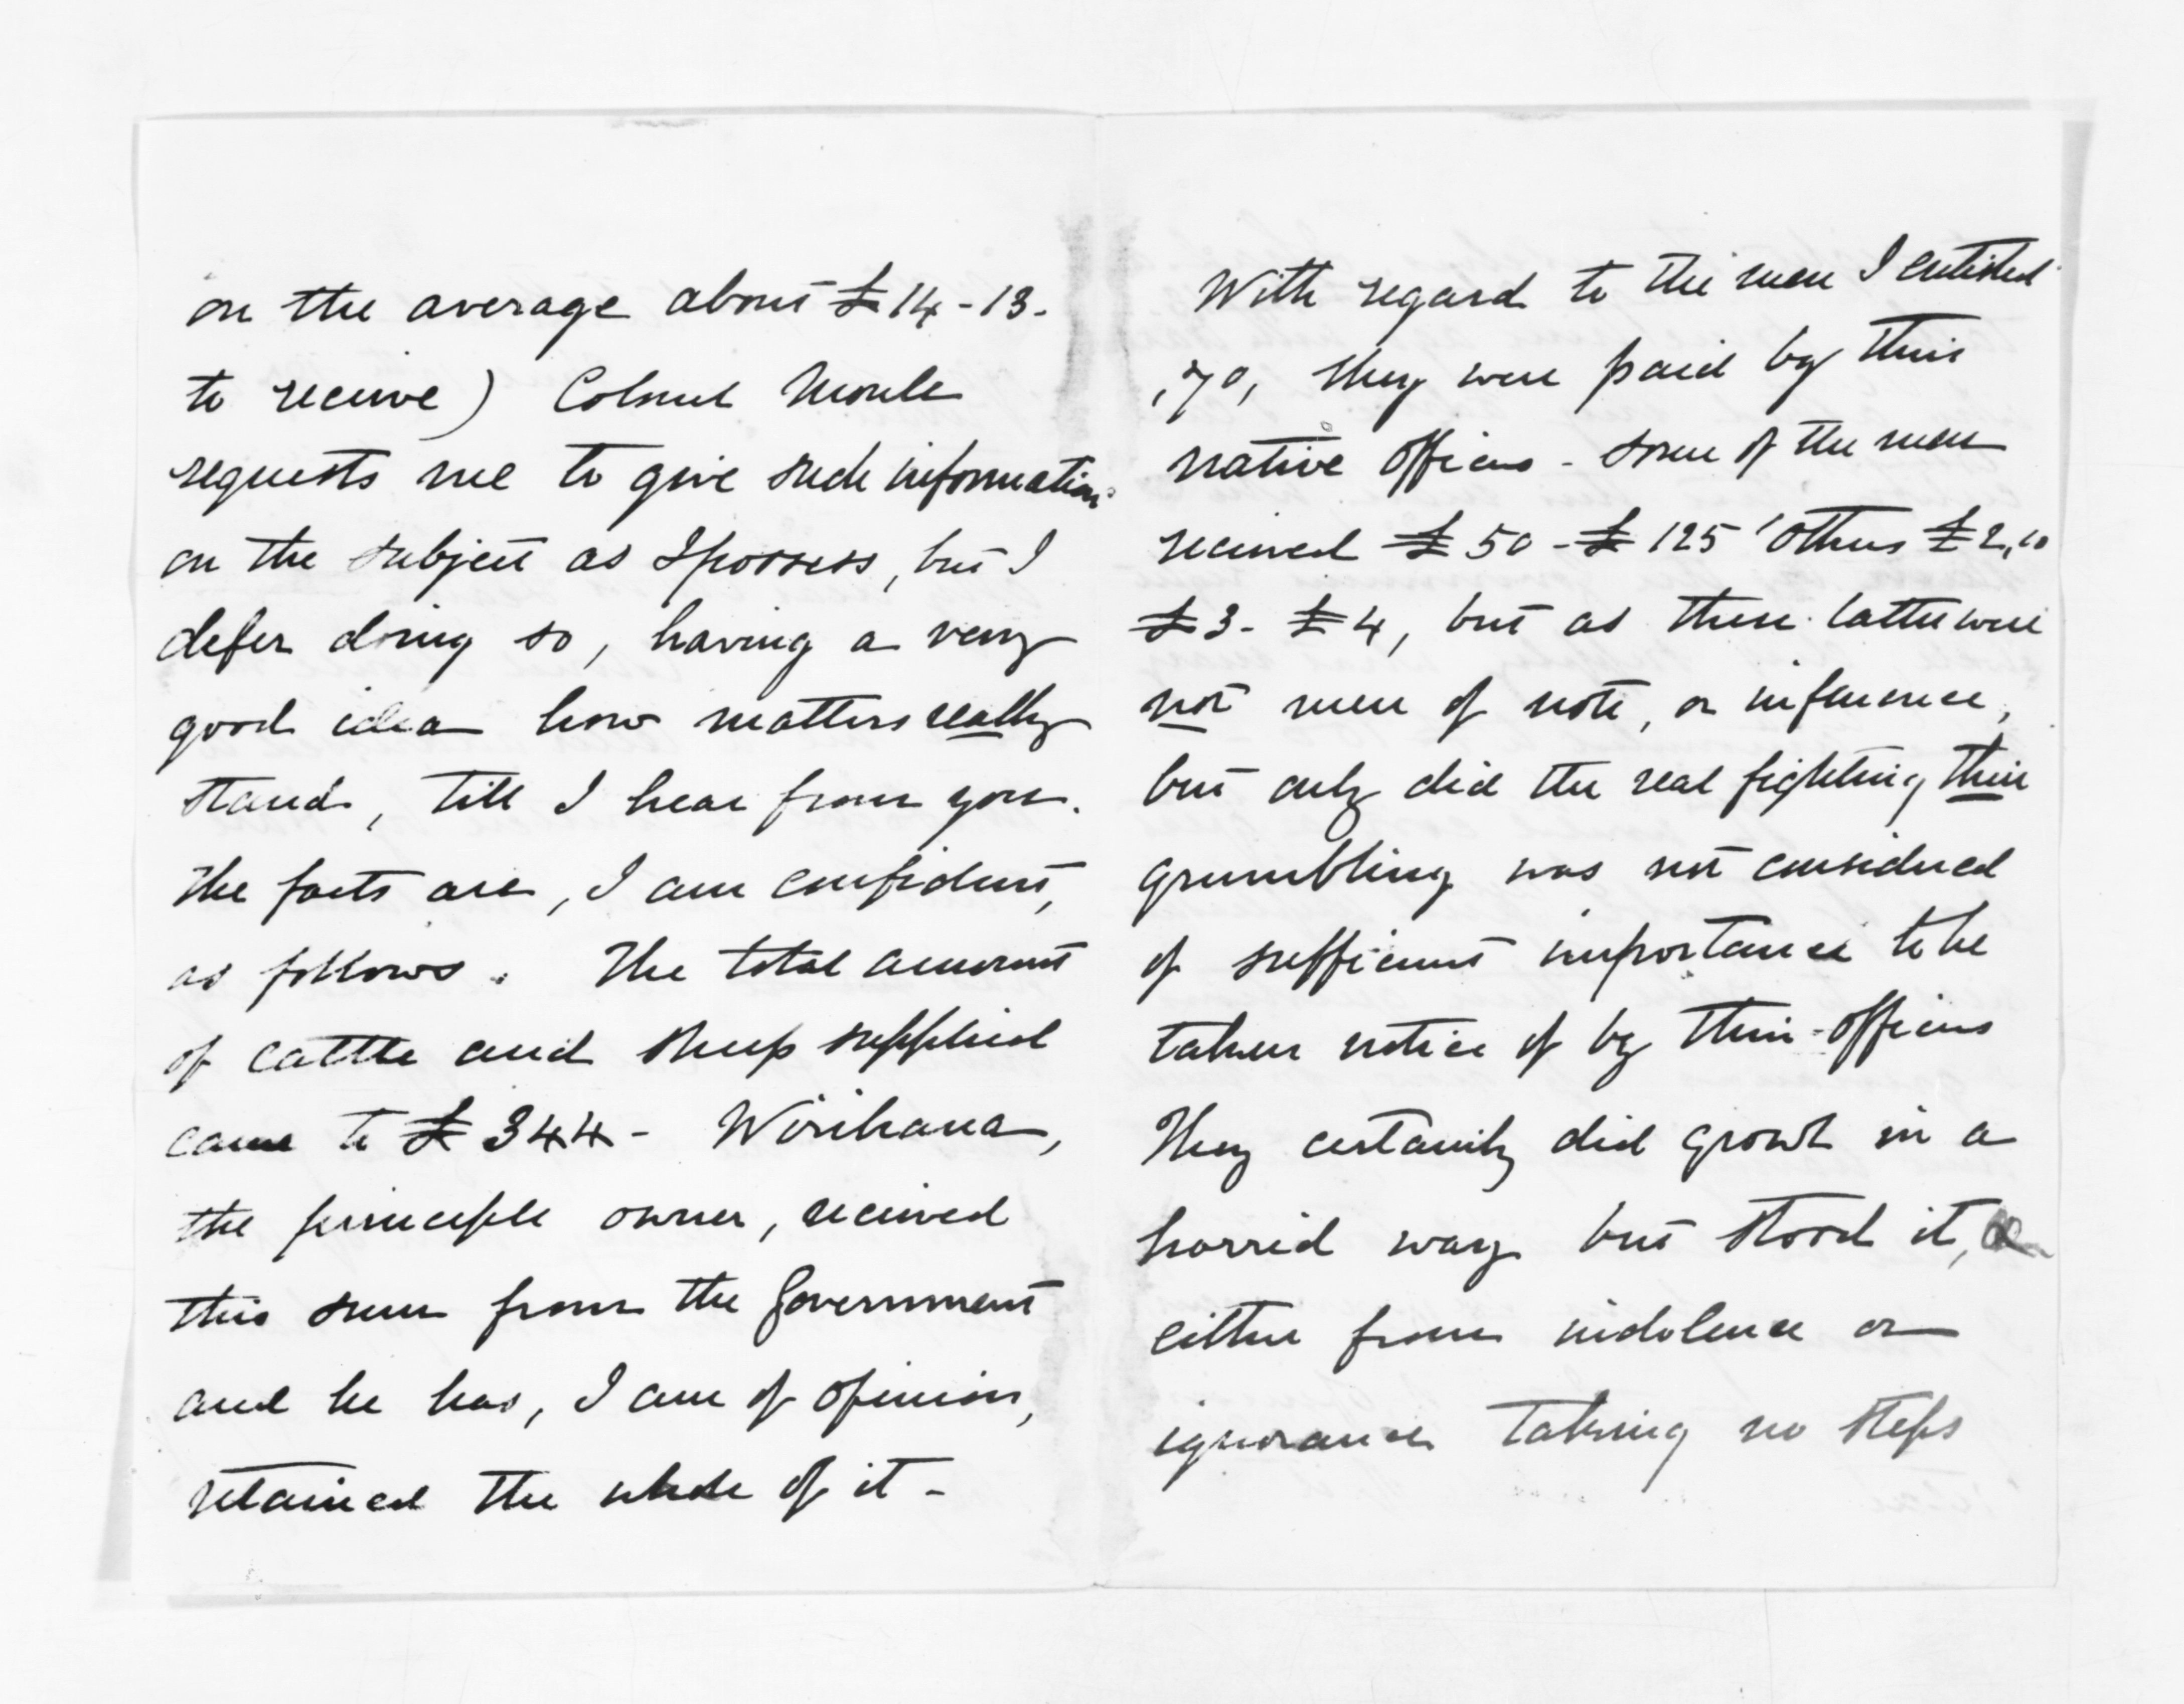 on the average about £14-13.
to receive) Colonel Moule
requests me to give such information
on the subject as I possess, but I
defer doing so, having a very
good idea how matters really
stand, till I hear from you.
The facts are, I am confident,
as follows. The total amount
of cattle and sheep supplied
came to £344- Wirihana,
the principle owner, received
this sum from the Government
and he has, I am of opinion,
retained the whole of it -
With regard to the men I enlisted
,70, they were paid by their
native officers - some of the men
received £50 - £125 others £2,10
£3- £4, but as these latter were
not men of note, or influence,
but only did the real fighting their
grumbling was not considered
of sufficient importance to be
taken notice of by their officers
They certainly did growl in a
horrid way but stood it,
either from indolence or
ignorance taking no steps